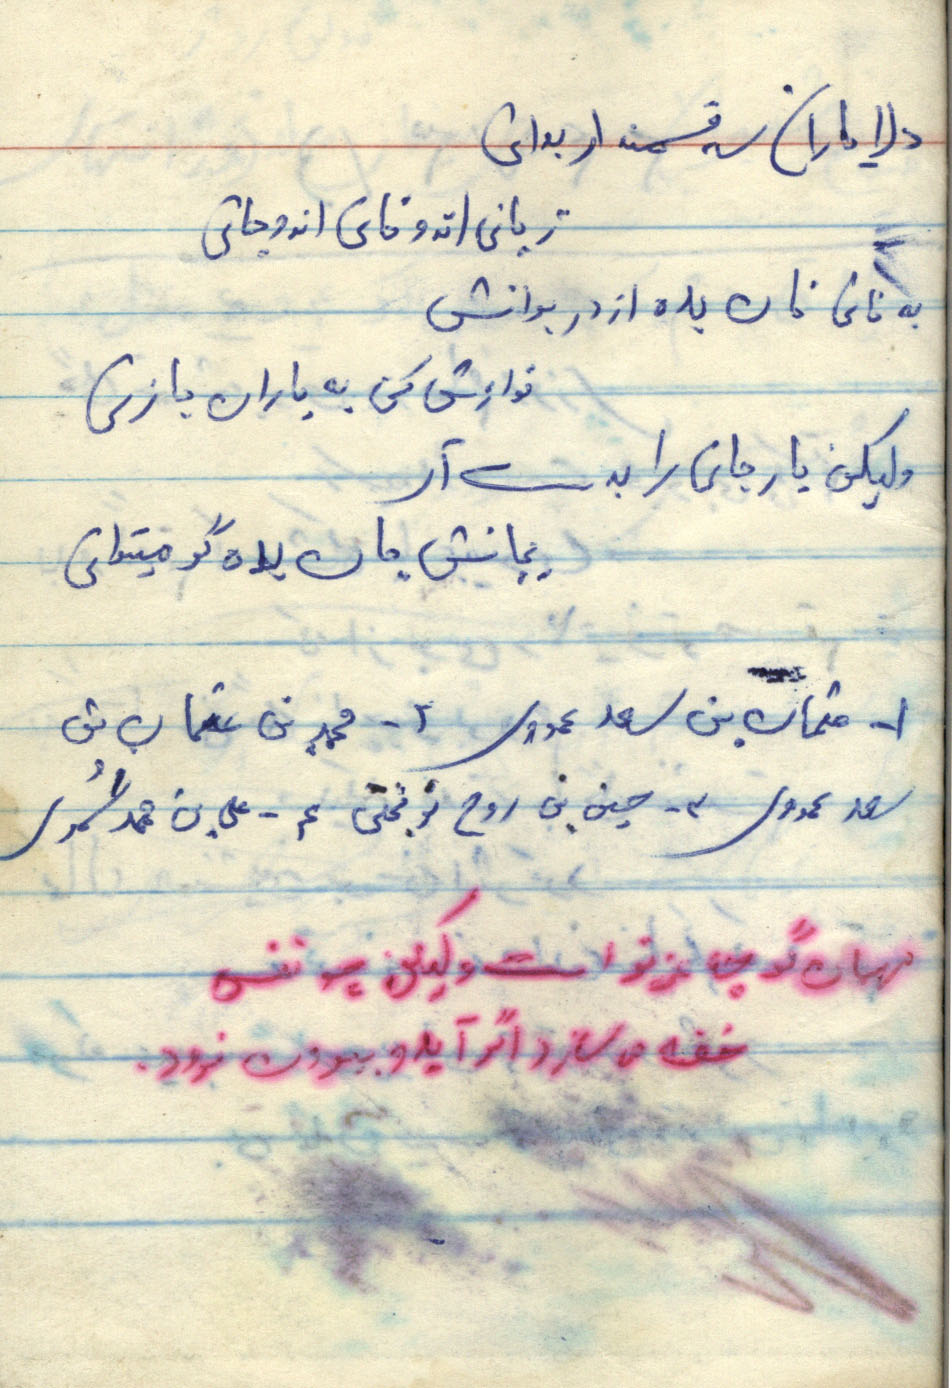 دلا یاران سه قسمند ار بدانی
زبانی اند و نانی اند و جانی
به نانی نان بده از در برانش
نوازش کن به یاران زبانی
ولیکن یار جانی را بدست آر
بجانش جان بده گر میتوانی
۱- عثمان بن سعد عمروی ۲- محمد بن عثمان بن
سعد عمروی ۳- حسین بن روح نوبختی ۴- علی بن محمد سمُری
مهمان گرچه عزیز است ولیکن چو نفس
خفه میسازد اگر آید و بیرون نرود.